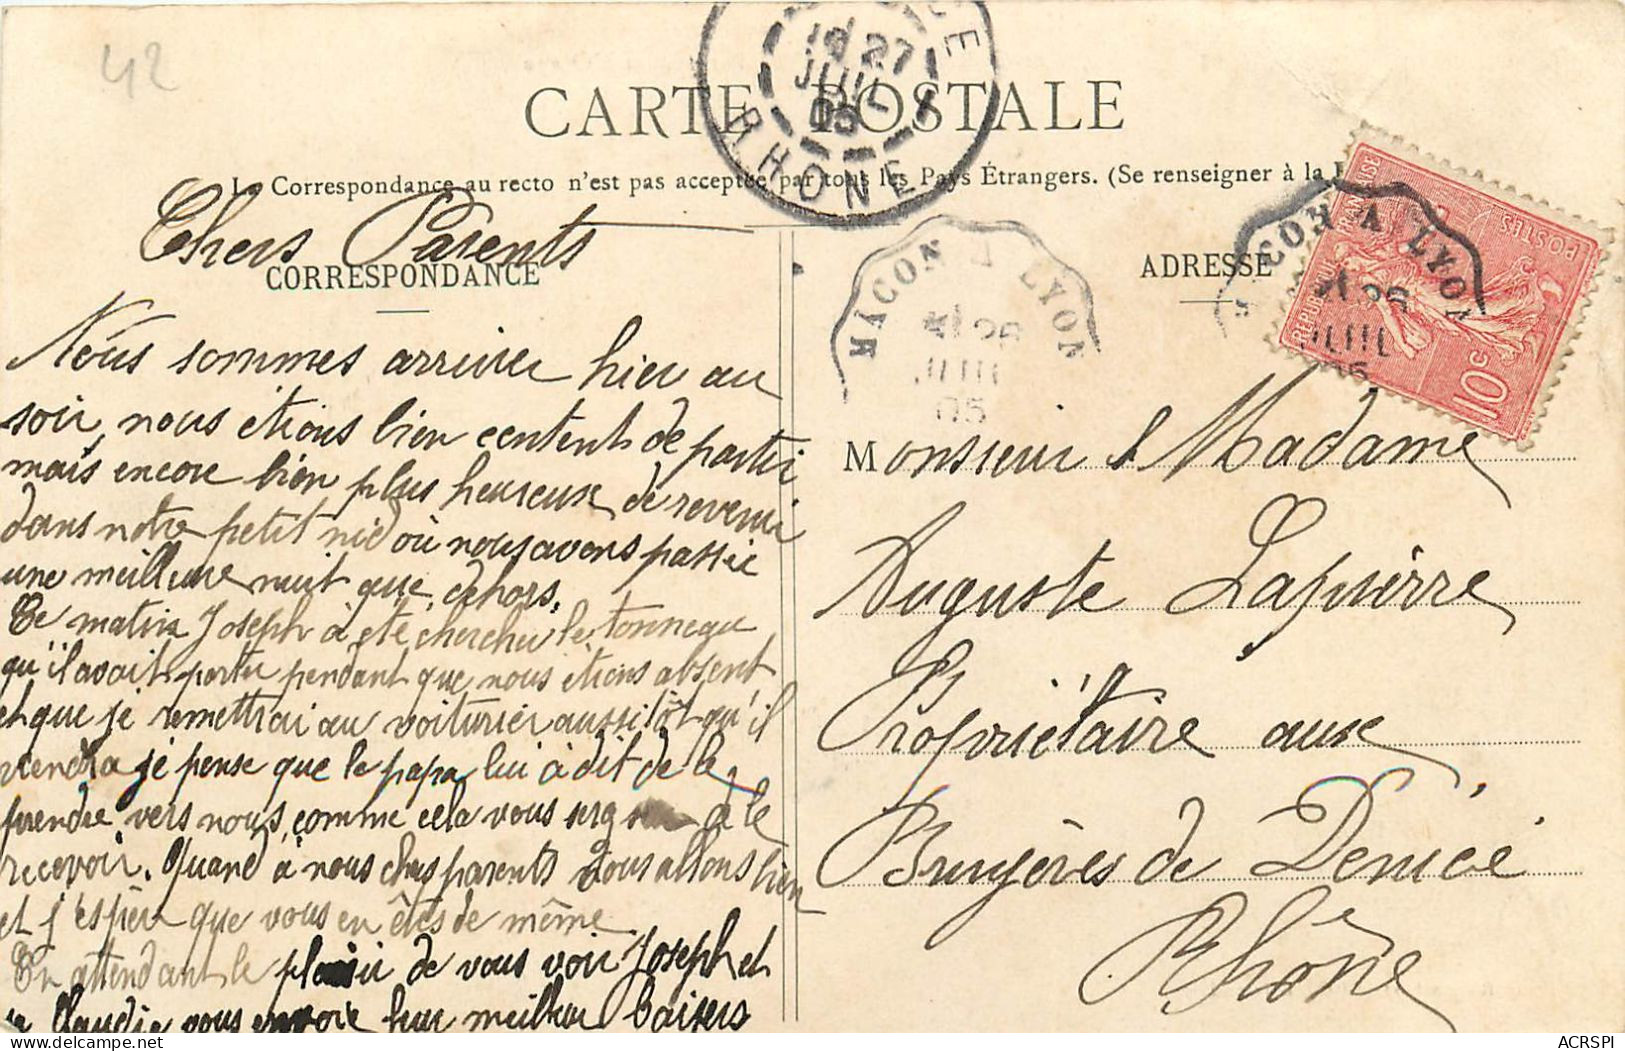 42
CARTE POSTALE
La Correspondance au recto n'est pas acceptée par tous les Pays Étrangers. (Se renseigner à la
RHONE
27
JUIL
05
CORRESPONDANCE
ADRESSE
MACON A LYON
25
JUIL
05
MACON A LYON
25
JUIL
REPUBLIQUE FRANÇAISE
POSTES
10c
Chers Parents
Nous sommes arriver hier au
soir, nous étions bien contents de partir
mais encore bien plus heureux de revenir
dans notre petit nid où nous avons passée
une meilleure nuit que dehors.
Ce matin Joseph à été chercher le tonneau
qu'il avait porter pendant que nous étions absent
et que je remettrai au voiturier aussitôt qu'il
viendra je pense que le papa lui à dit de le
prendre vers nous, comme cela vous sera à le
recevoir. Quand à nous chers parents nous allons bien
et j'espère que vous en êtes de même
En attendant le plaisir de vous voir Joseph et
Claudia vous envoie leur meilleur baisers
Monsieur & Madame
Auguste Lapierre
Propriétaire aux
Bruyères de Denicé
Rhône
ACRSPI